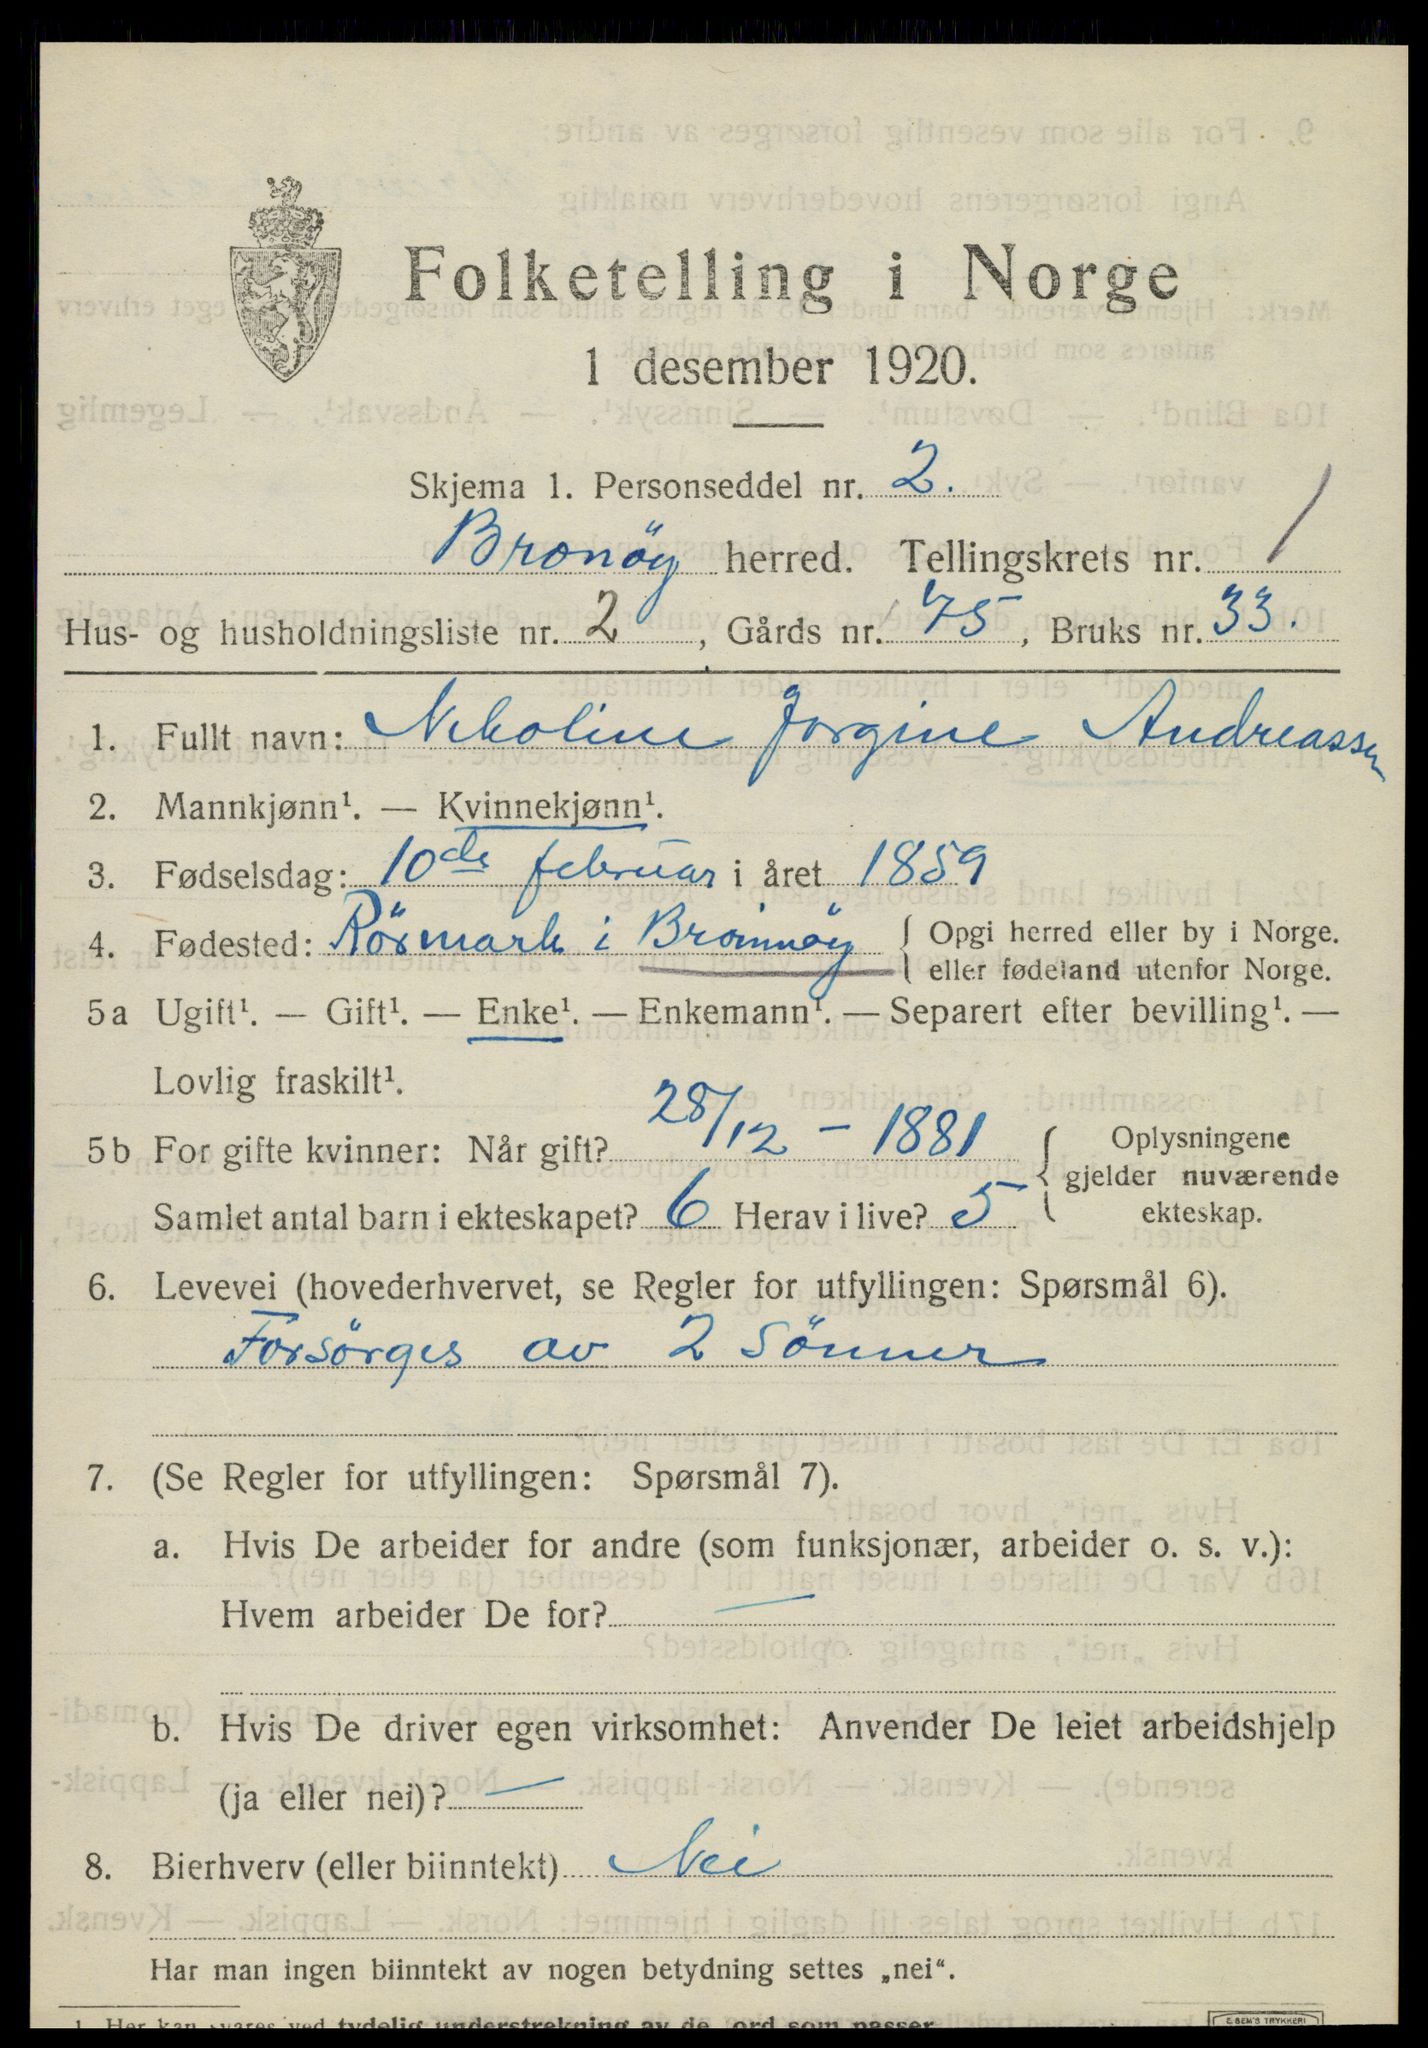 Folketelling i Norge
1 desember 1920.
Skjema 1. Personseddel nr. 2.
Bronöy herred. Tellingskrets nr. 1
Hus- og husholdningsliste nr. 2, Gårds nr. 75, Bruks nr. 33.
1. Fullt navn: Nikoline Jorgine Andreassen
2. Mannkjønn¹. — Kvinnekjønn¹.
3. Fødselsdag: 10de februar i året 1859
4. Fødested: Rösmark i Brönnöy { Opgi herred eller by i Norge.
eller fødeland utenfor Norge.
5a Ugift¹. — Gift¹. — Enke¹. — Enkemann¹. — Separert efter bevilling¹. —
Lovlig fraskilt¹.
5b For gifte kvinner: Når gift? 28/12 - 1881
Samlet antal barn i ekteskapet? 6 Herav i live? 5
{ Oplysningene
gjelder nuværende
ekteskap.
6. Levevei (hovederhvervet, se Regler for utfyllingen: Spørsmål 6).
Forsörges av 2 Sönner
7. (Se Regler for utfyllingen: Spørsmål 7).
a. Hvis De arbeider for andre (som funksjonær, arbeider o. s. v.):
Hvem arbeider De for? —
b. Hvis De driver egen virksomhet: Anvender De leiet arbeidshjelp
(ja eller nei)? —
8. Bierhverv (eller biinntekt) Nei
Har man ingen biinntekt av nogen betydning settes „nei“.
1. Her kan svares ved tydelig understrekning av de ord som passer.
E. SEM'S TRYKKERI